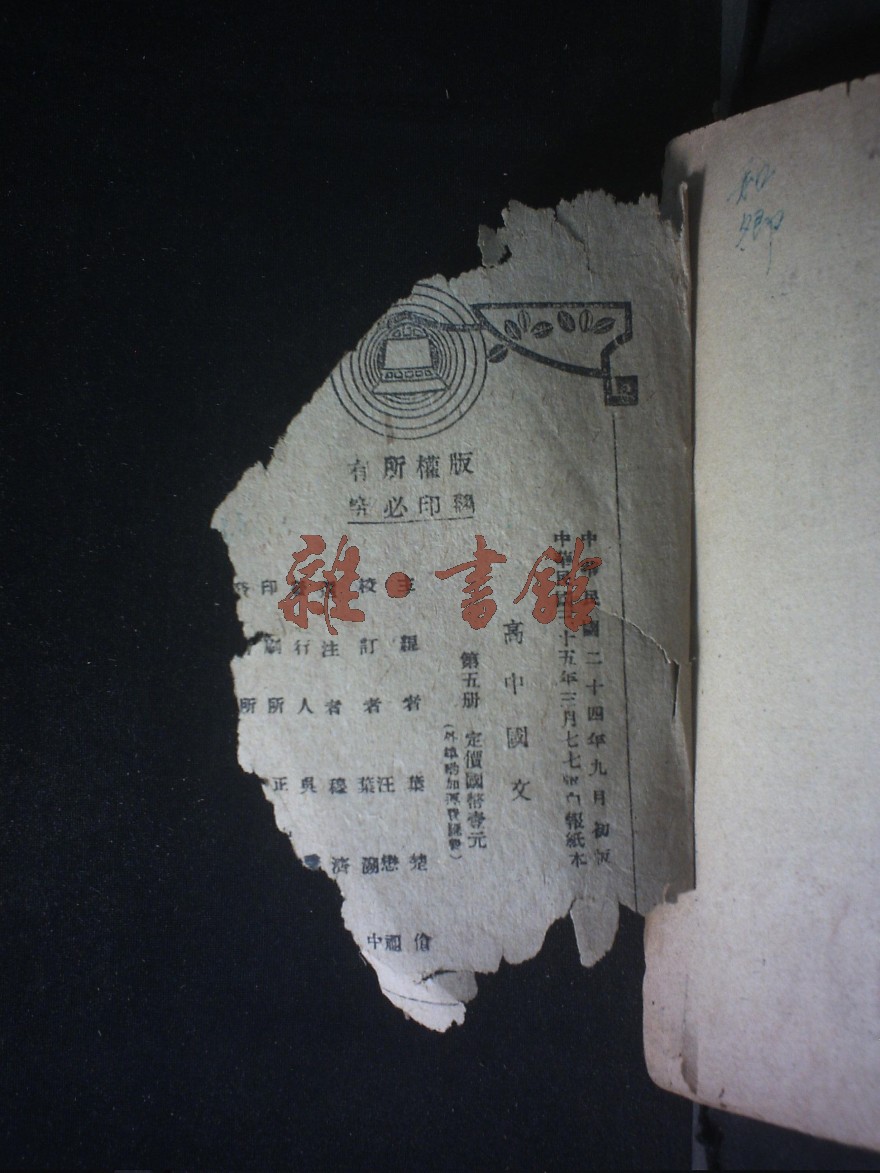 版權所有
翻印必究
中華民國二十四年九月初版
中華民國三十五年三月七七版白報紙本
高中國文
第五册 定價國幣壹元
(外埠酌加運費匯費)
主編者 葉楚傖
校訂者 汪懋祖
葉溯中
注者 穆濟
發行人 吳
印刷所 正
所
雜·書館